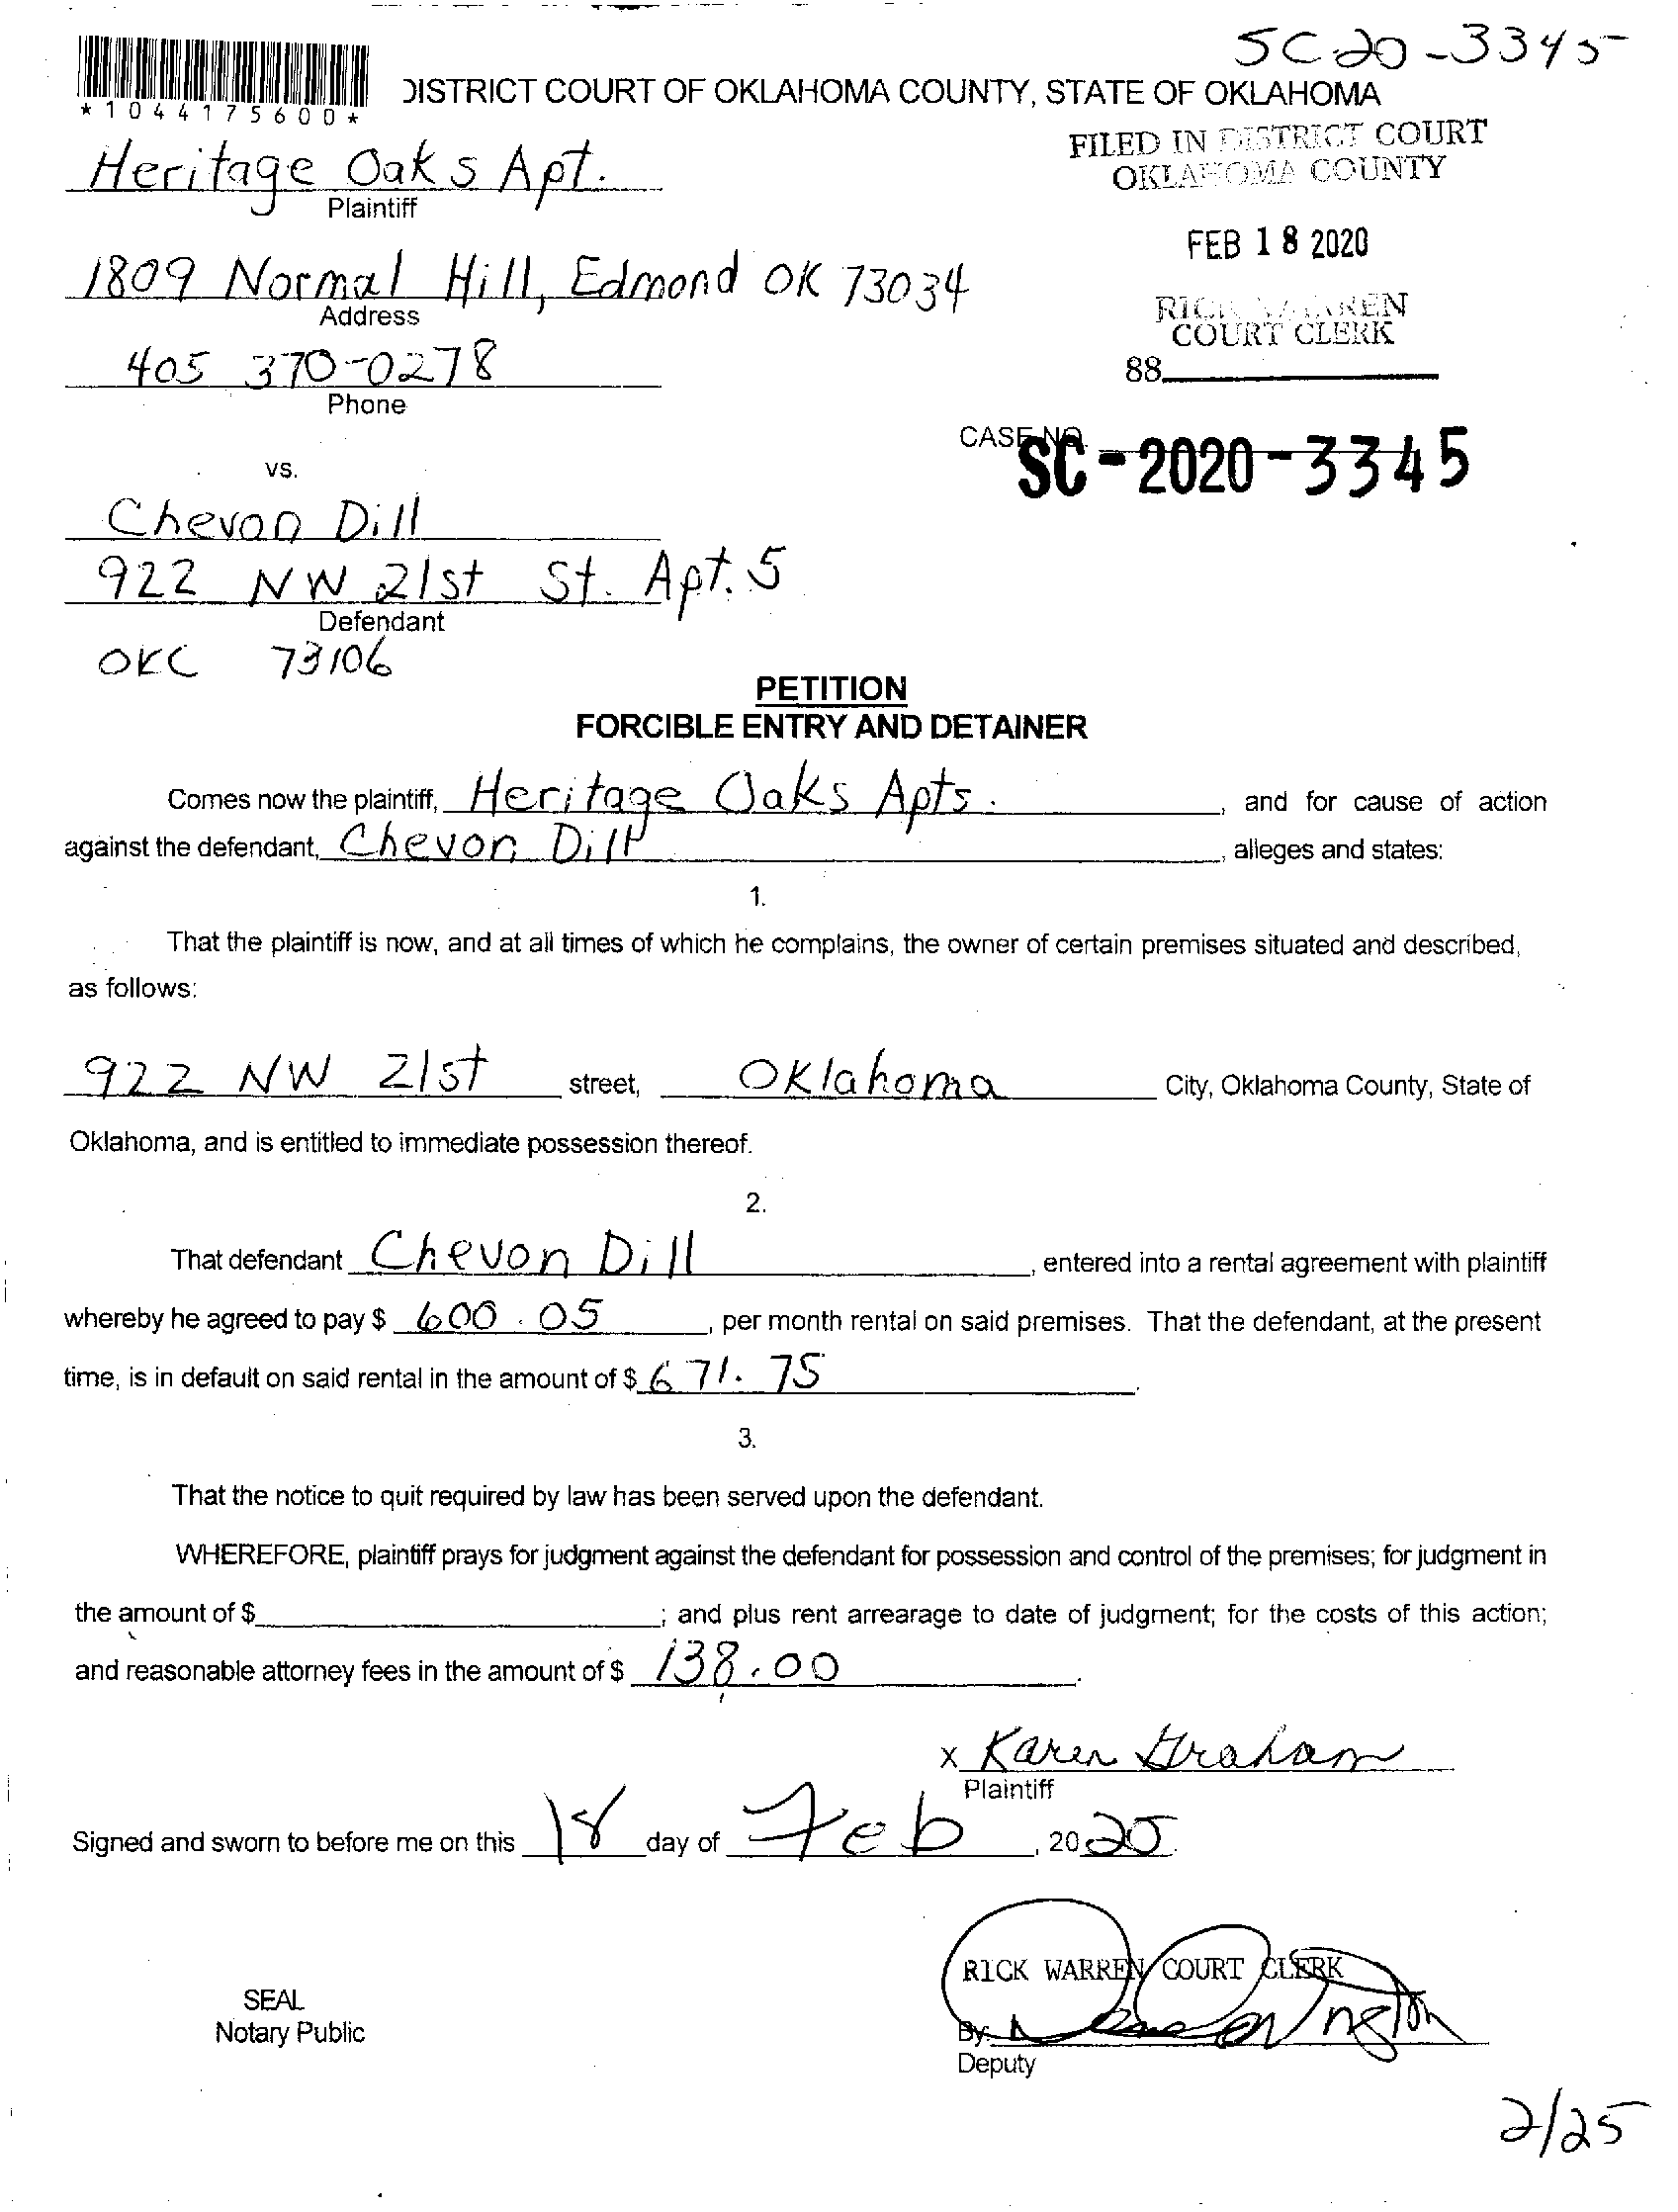 SC20-3345
*1044175600*
DISTRICT COURT OF OKLAHOMA COUNTY, STATE OF OKLAHOMA
FILED IN DISTRICT COURT
OKLAHOMA COUNTY
Heritage Oaks Apt.
Plaintiff
FEB 18 2020
1809 Normal Hill, Edmond OK 73034
Address
RICK WARREN
COURT CLERK
405 370-0278
88
Phone
CASE NO.
SC-2020-3345
vs.
Chevon Dill
922 NW 21st St. Apt. 5
Defendant
OKC 73106
PETITION
FORCIBLE ENTRY AND DETAINER
Comes now the plaintiff, Heritage Oaks Apts. , and for cause of action
against the defendant, Chevon Dill , alleges and states:
1.
That the plaintiff is now, and at all times of which he complains, the owner of certain premises situated and described,
as follows:
922 NW 21st street, Oklahoma City, Oklahoma County, State of
Oklahoma, and is entitled to immediate possession thereof.
2.
That defendant Chevon Dill , entered into a rental agreement with plaintiff
whereby he agreed to pay $ 600.05 , per month rental on said premises. That the defendant, at the present
time, is in default on said rental in the amount of $ 671.75 .
3.
That the notice to quit required by law has been served upon the defendant.
WHEREFORE, plaintiff prays for judgment against the defendant for possession and control of the premises; for judgment in
the amount of $ ; and plus rent arrearage to date of judgment; for the costs of this action;
and reasonable attorney fees in the amount of $ 138.00 .
x Karen Graham
Plaintiff
Signed and sworn to before me on this 18 day of Feb , 20 20 .
RICK WARREN COURT CLERK
SEAL
Notary Public
By:
Deputy
2/25